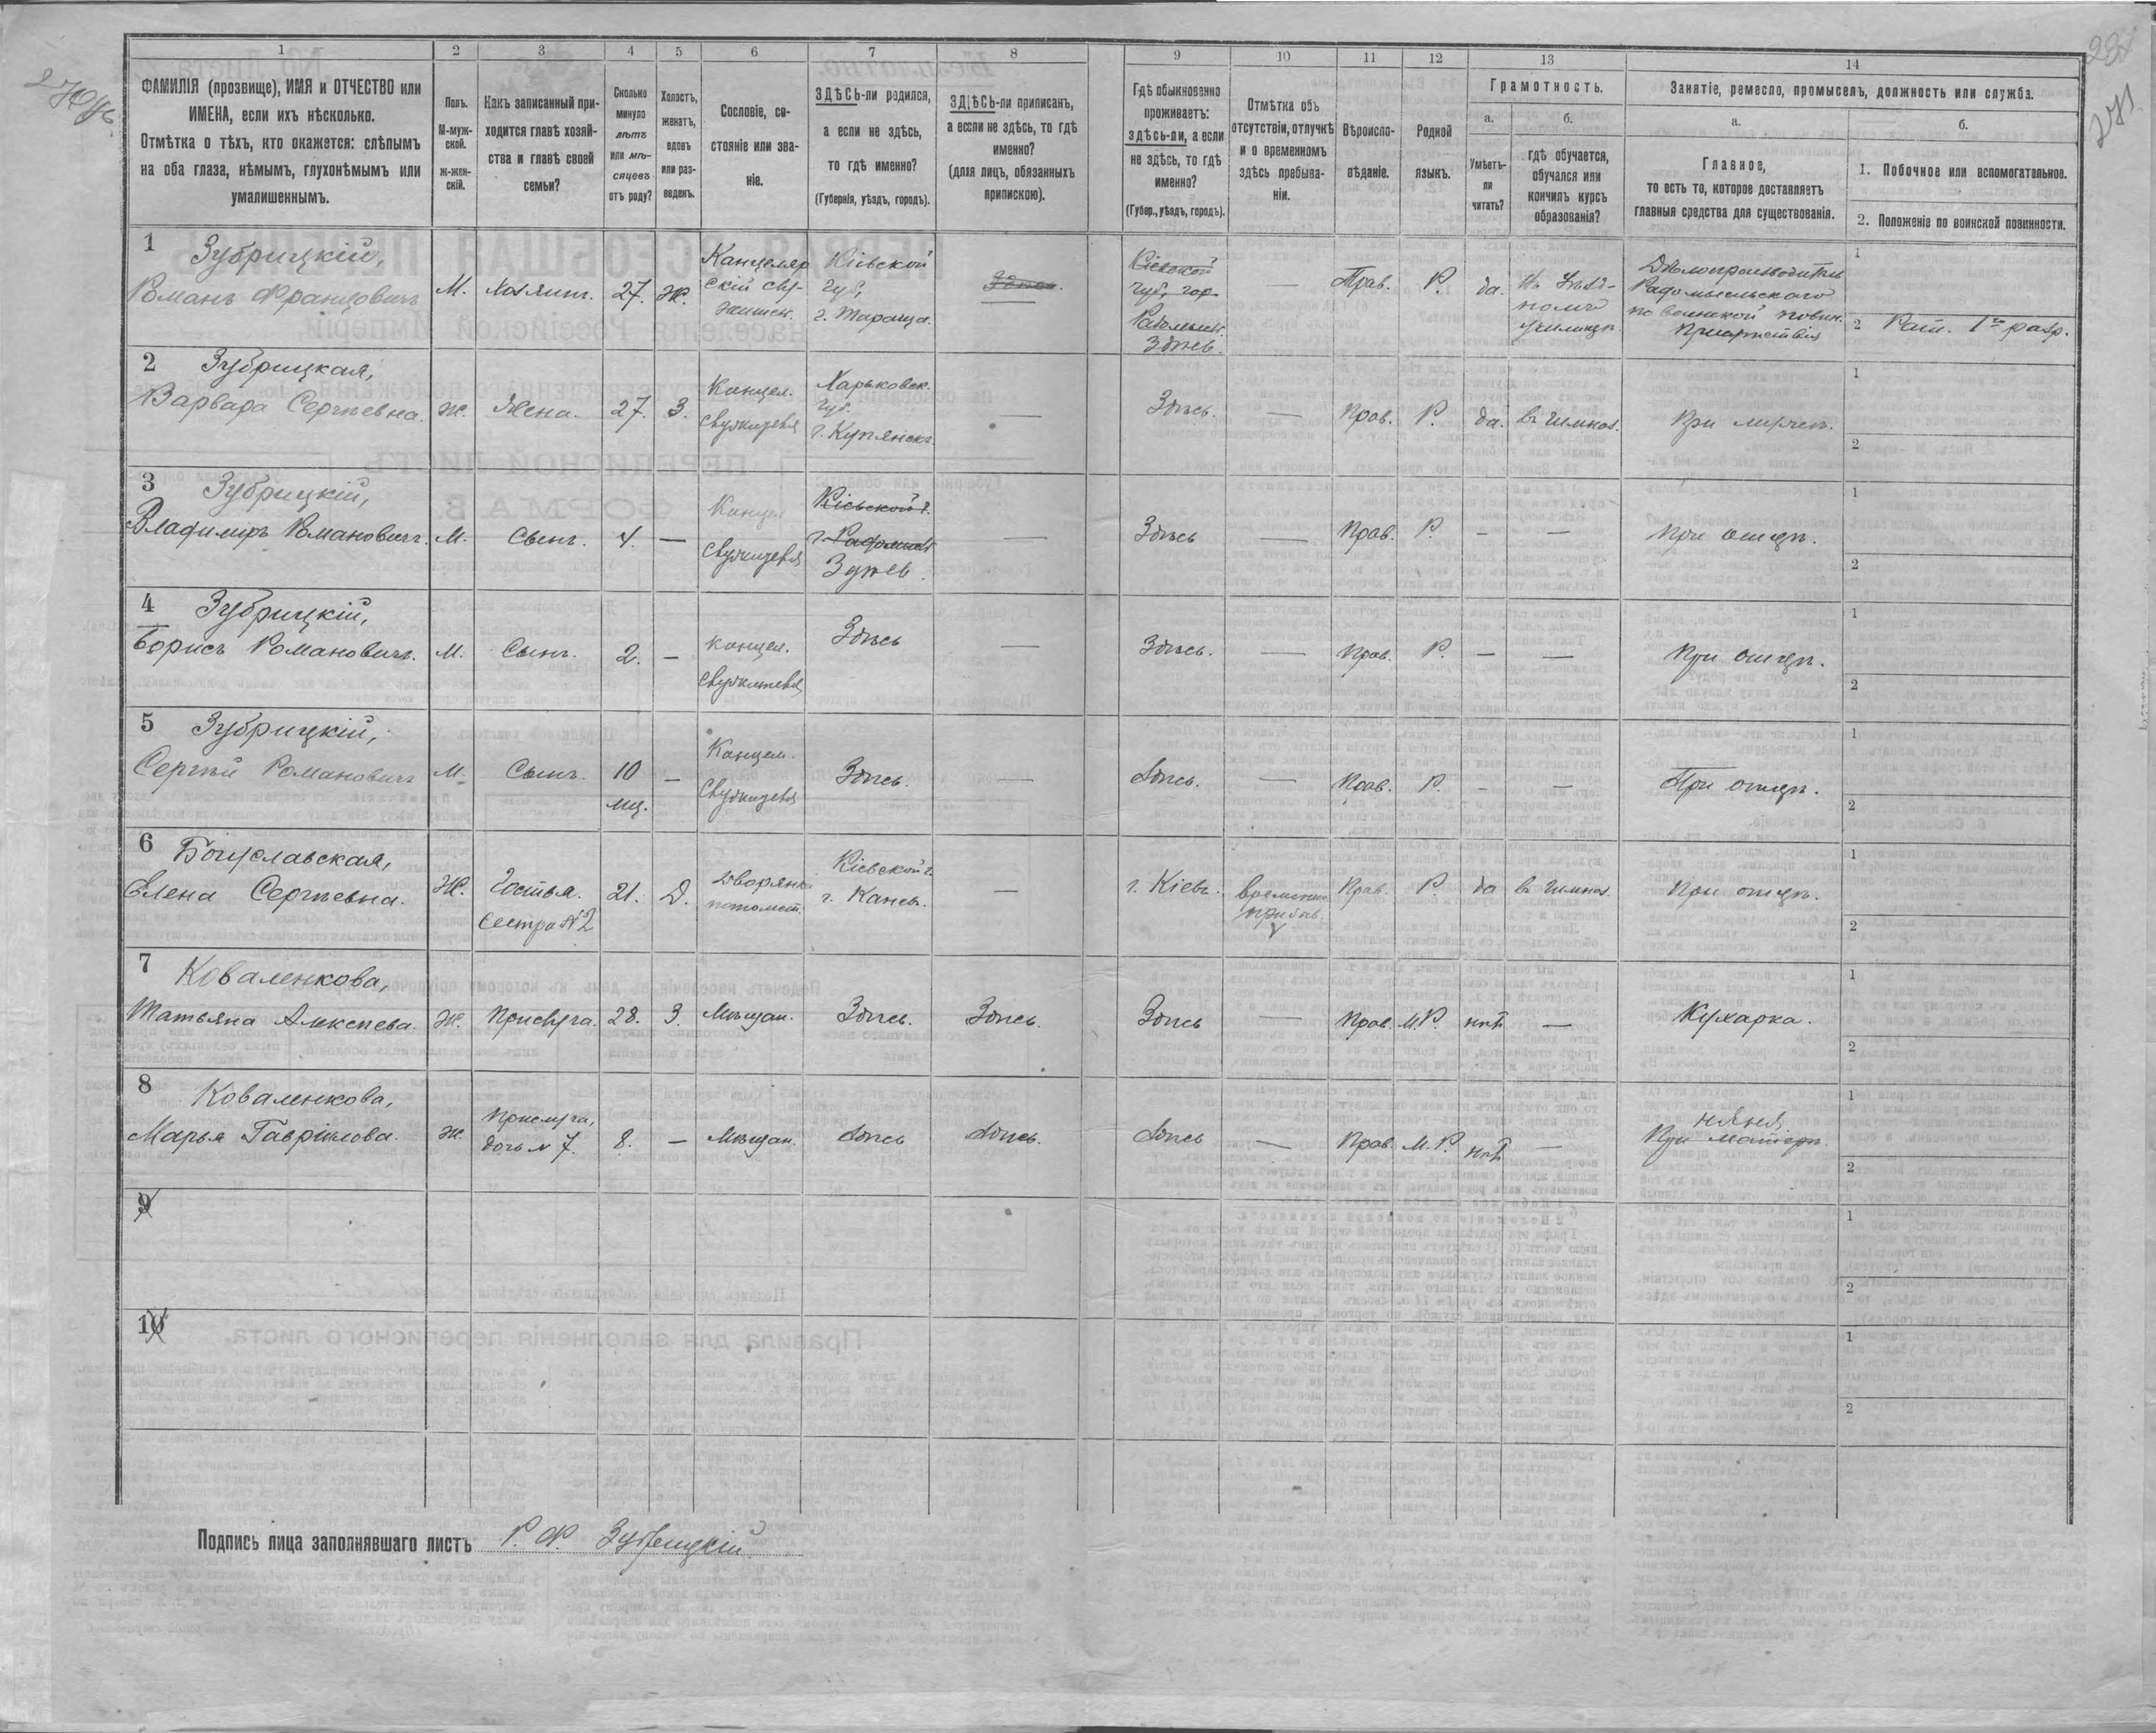 270
1 2 3 4 5 6 7 8 9 10 11 12 13 14
ФАМИЛІЯ (прозвище), ИМЯ и ОТЧЕСТВО или
ИМЕНА, если ихъ нѣсколько.
Отмѣтка о тѣхъ, кто окажется: слѣпымъ
на оба глаза, нѣмымъ, глухонѣмымъ или
умалишеннымъ.
Полъ.
М-муж-
ской.
ж-жен-
скій.
Какъ записанный при-
ходится главѣ хозяй-
ства и главѣ своей
семьи?
Сколько
минуло
лѣтъ
или мѣ-
сяцевъ
отъ роду?
Холостъ,
женатъ,
вдовъ
или раз-
веденъ.
Сословіе, со-
стояніе или зва-
ніе.
ЗДѢСЬ-ли родился,
а если не здѣсь,
то гдѣ именно?
(Губернія, уѣздъ, городъ).
ЗДѢСЬ-ли приписанъ,
а если не здѣсь, то гдѣ
именно?
(для лицъ, обязанныхъ
припискою).
Гдѣ обыкновенно
проживаетъ:
здѣсь-ли, а если
не здѣсь, то гдѣ
именно?
(Губер., уѣздъ, городъ).
Отмѣтка объ
отсутствіи, отлучкѣ
и о временномъ
здѣсь пребыва-
ніи.
Вѣроиспо-
вѣданіе.
Родной
языкъ.
Грамотность.
а.
Умѣетъ-
ли
читать?
б.
гдѣ обучается,
обучался или
кончилъ курсъ
образованія?
Занятіе, ремесло, промыселъ, должность или служба.
а.
Главное,
то есть то, которое доставляетъ
главныя средства для существованія.
б.
1. Побочное или вспомогательное.
2. Положеніе по воинской повинности.
271
1 Зубрицкій,
Романъ Францовичъ
М. Хозяинъ. 27. Ж.
Канцеляр
скій слу-
жител.
Кіевской
губ,
г. Тараща.
Здѣсь.
Кіевской
губ, гор.
Радомысл.
Здѣсь.
— Прав. Р. да.
Въ Уѣзд-
номъ
училищѣ
Дѣлопроизводитель
Радомысльскаго
по воинской повин.
присутствія
1
2 Рат. 1го разр.
2 Зубрицкая,
Варвара Сергѣевна. Ж. Жена. 27. З.
Канцел.
служителя
Харьковск.
губ.
г. Купянскъ
—
Здѣсь. — Прав. Р. да. въ гимназ. При мужѣ.
1
2
3 Зубрицкій,
Владимиръ Романовичъ. М. Сынъ. 4. —
Канцел
служителя
Кіевской г.
г. Радомысл
Здѣсь.
—
Здѣсь — Прав. Р. — — При отцѣ.
1
2
4 Зубрицкій,
Борисъ Романовичъ. М. Сынъ. 2. —
Канцел.
служителя
Здѣсь —
Здѣсь. — Прав. Р. — — При отцѣ.
1
2
5 Зубрицкій,
Сергѣй Романовичъ М. Сынъ. 10
мц. —
Канцел.
служителя
Здѣсь. —
Здѣсь. — Прав. Р. — — При отцѣ.
1
2
6 Богуславская,
Елена Сергѣевна. Ж. Гостья.
Сестра №2
21. Д.
Дворянка
потомст.
Кіевской г.
г. Каневъ.
—
г. Кіевъ.
временно
прибыв.
Прав. Р. да въ гимназ. При отцѣ.
1
2
7 Коваленкова,
Татьяна Алексѣева. Ж. Прислуга. 28. З. Мѣщан. Здѣсь. Здѣсь. Здѣсь — Прав. М.Р. нѣтъ — Кухарка.
1
2
8 Коваленкова,
Марья Гаврілова. Ж.
Прислуга,
дочь № 7.
8. — Мѣщан. Здѣсь Здѣсь. Здѣсь — Прав. М.Р. нѣтъ —
няня.
При матери.
1
2
9
1
2
10
1
2
Подпись лица заполнявшаго листъ Р. Ф. Зубрицкій